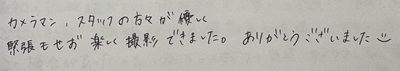 カメラマン、スタッフの方々が優しく
緊張もせず楽しく撮影できました。ありがとうございました